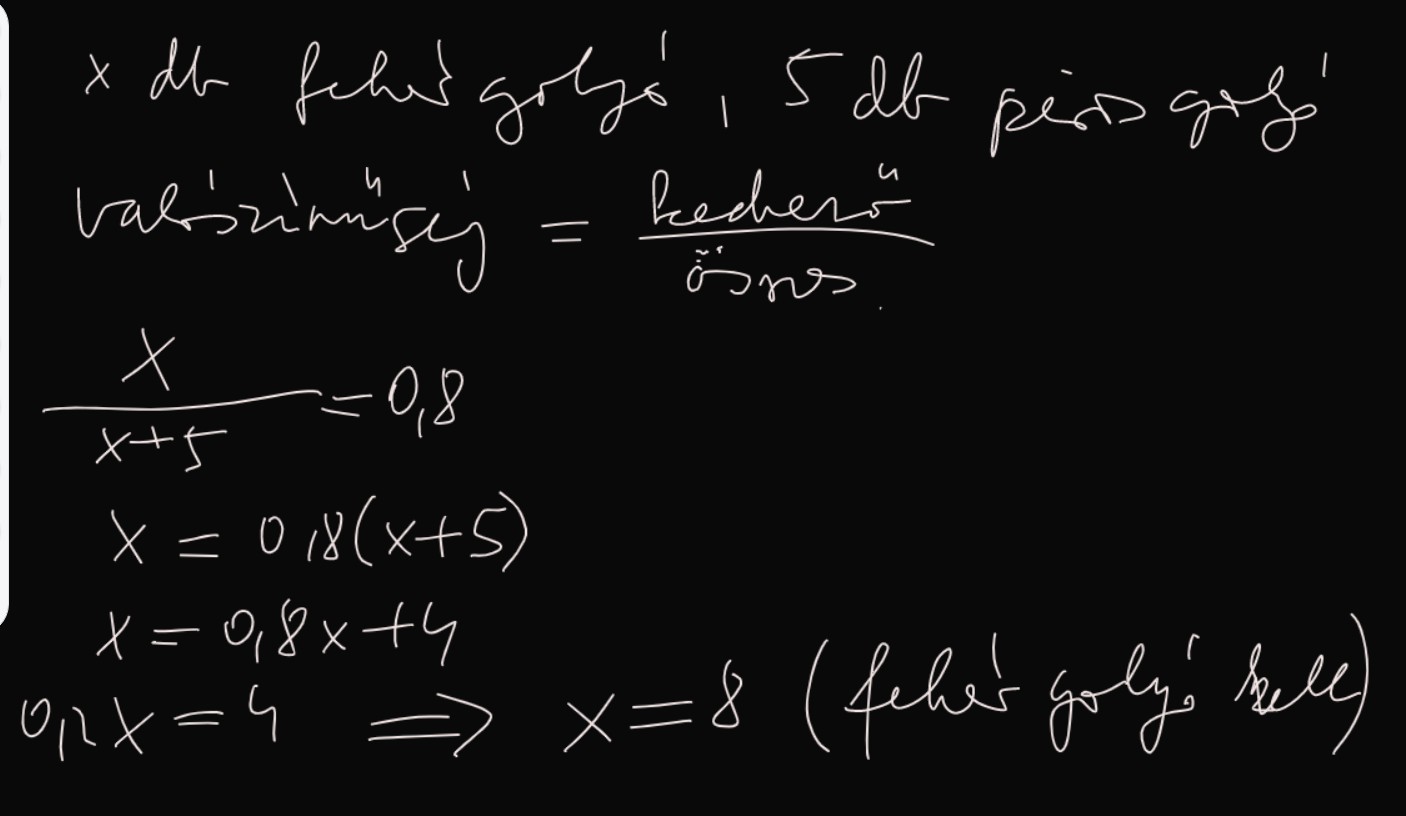 x db fehér golyó, 5 db piros golyó
valószínűség = kedvező / összes
x / x+5 = 0,8
x = 0,8(x+5)
x = 0,8x+4
0,2x = 4 ⇒ x = 8 (fehér golyó kell)